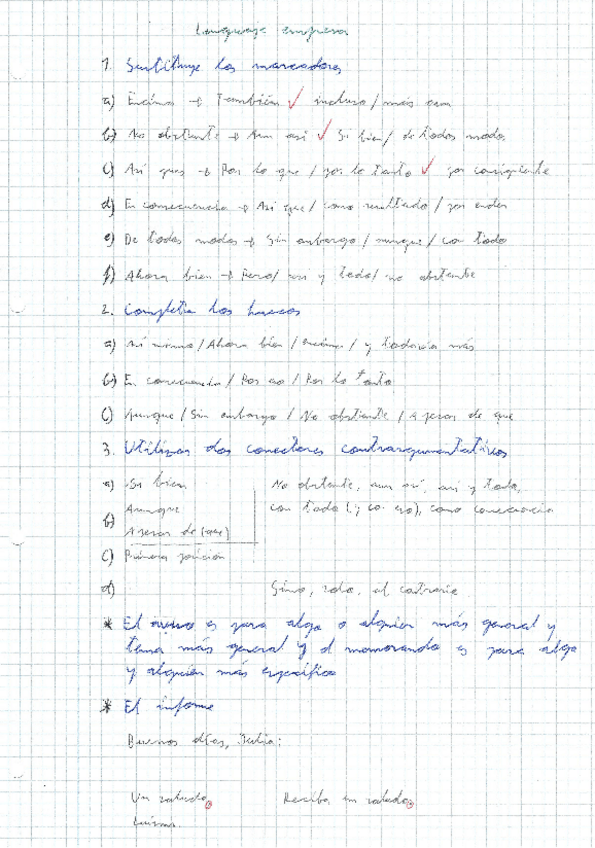 Lenguaje empresa
1. Sustituye los marcadores
a) Encima → También ✓ incluso / más aún
b) No obstante → Aun así ✓ Si bien / de todos modos
c) Así que → Por lo que / por lo tanto ✓ por consiguiente
d) En consecuencia → Así que / como resultado / por ende
e) De todos modos → Sin embargo / aunque / con todo
f) Ahora bien → Pero / así y todo / no obstante
2. Completa los huecos
a) Así mismo / Ahora bien / Encima / y todavía más
b) En consecuencia / Por eso / Por lo tanto
c) Aunque / Sin embargo / No obstante / A pesar de que
3. Utilizar dos conectores contraargumentativos
a) Si bien
No obstante, aun así, así y todo,
b) Aunque
con todo (y con eso), como consecuencia
A pesar de (que)
c) Primera posición
d) Sino, todo, al contrario
* El aviso es para algo o alguien más general y
tema más general y el memorando es para algo
y alguien más específico
* El informe
Buenos días, Julia:
Un saludo. Reciba un saludo.